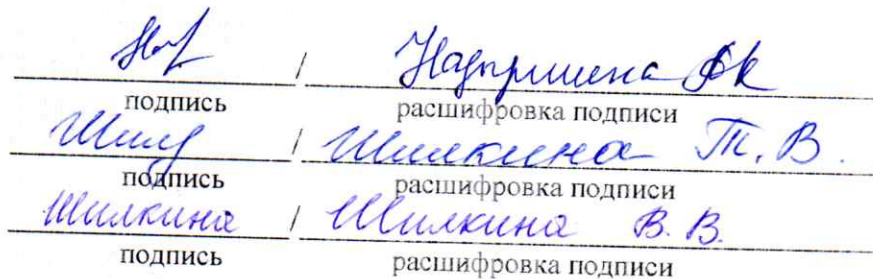 / Надыршина ФК
подпись расшифровка подписи
Шилд / Шилкина Т. В.
подпись расшифровка подписи
Шилкина / Шилкина В. В.
подпись расшифровка подписи